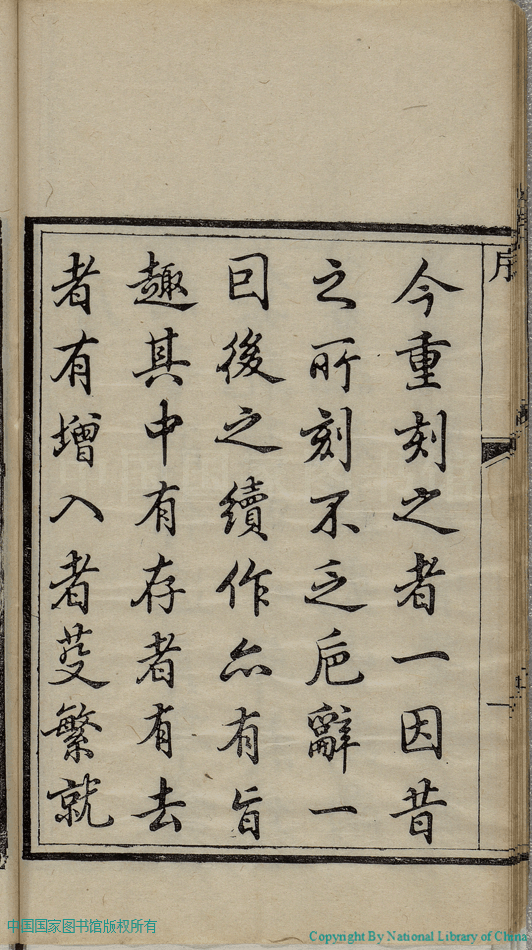 序
今重刻之者一因昔
之所刻不乏巵辭一
因後之續作亦有旨
趣其中有存者有去
者有增入者芟繁就
一
中国国家图书馆版权所有
Copyright By National Library of China